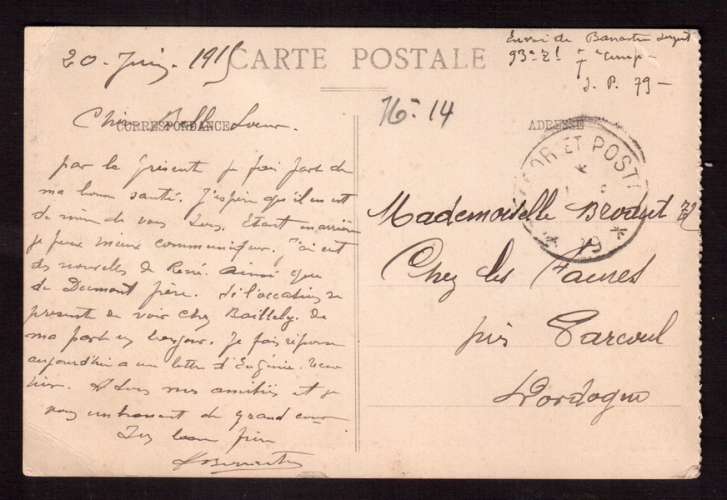 20 Juin 1915
CARTE POSTALE
Envoi de
93e
S. P. 79
CORRESPONDANCE
ADRESSE
16-14
TRESOR ET POSTES
* 79 *
Chère Belle Soeur.
par la présente je fais part de
ma bonne santé. J'espère qu'il en est
de même de vous tous. Etant en arrière
je peux mieux communiquer. J'ai eut
des nouvelles de René. Ainsi que
de Dumont frère. Si l'occasion se
présente de voir chez Baillely. De
ma part un bonjour. Je fais réponse
aujourd'hui a une lettre d'Eugénie
hier. A tous mes amitiés et je
vous embrassent de grand coeur
beau frère
Mademoiselle
Chez les Faures
près Parcoul
Dordogne